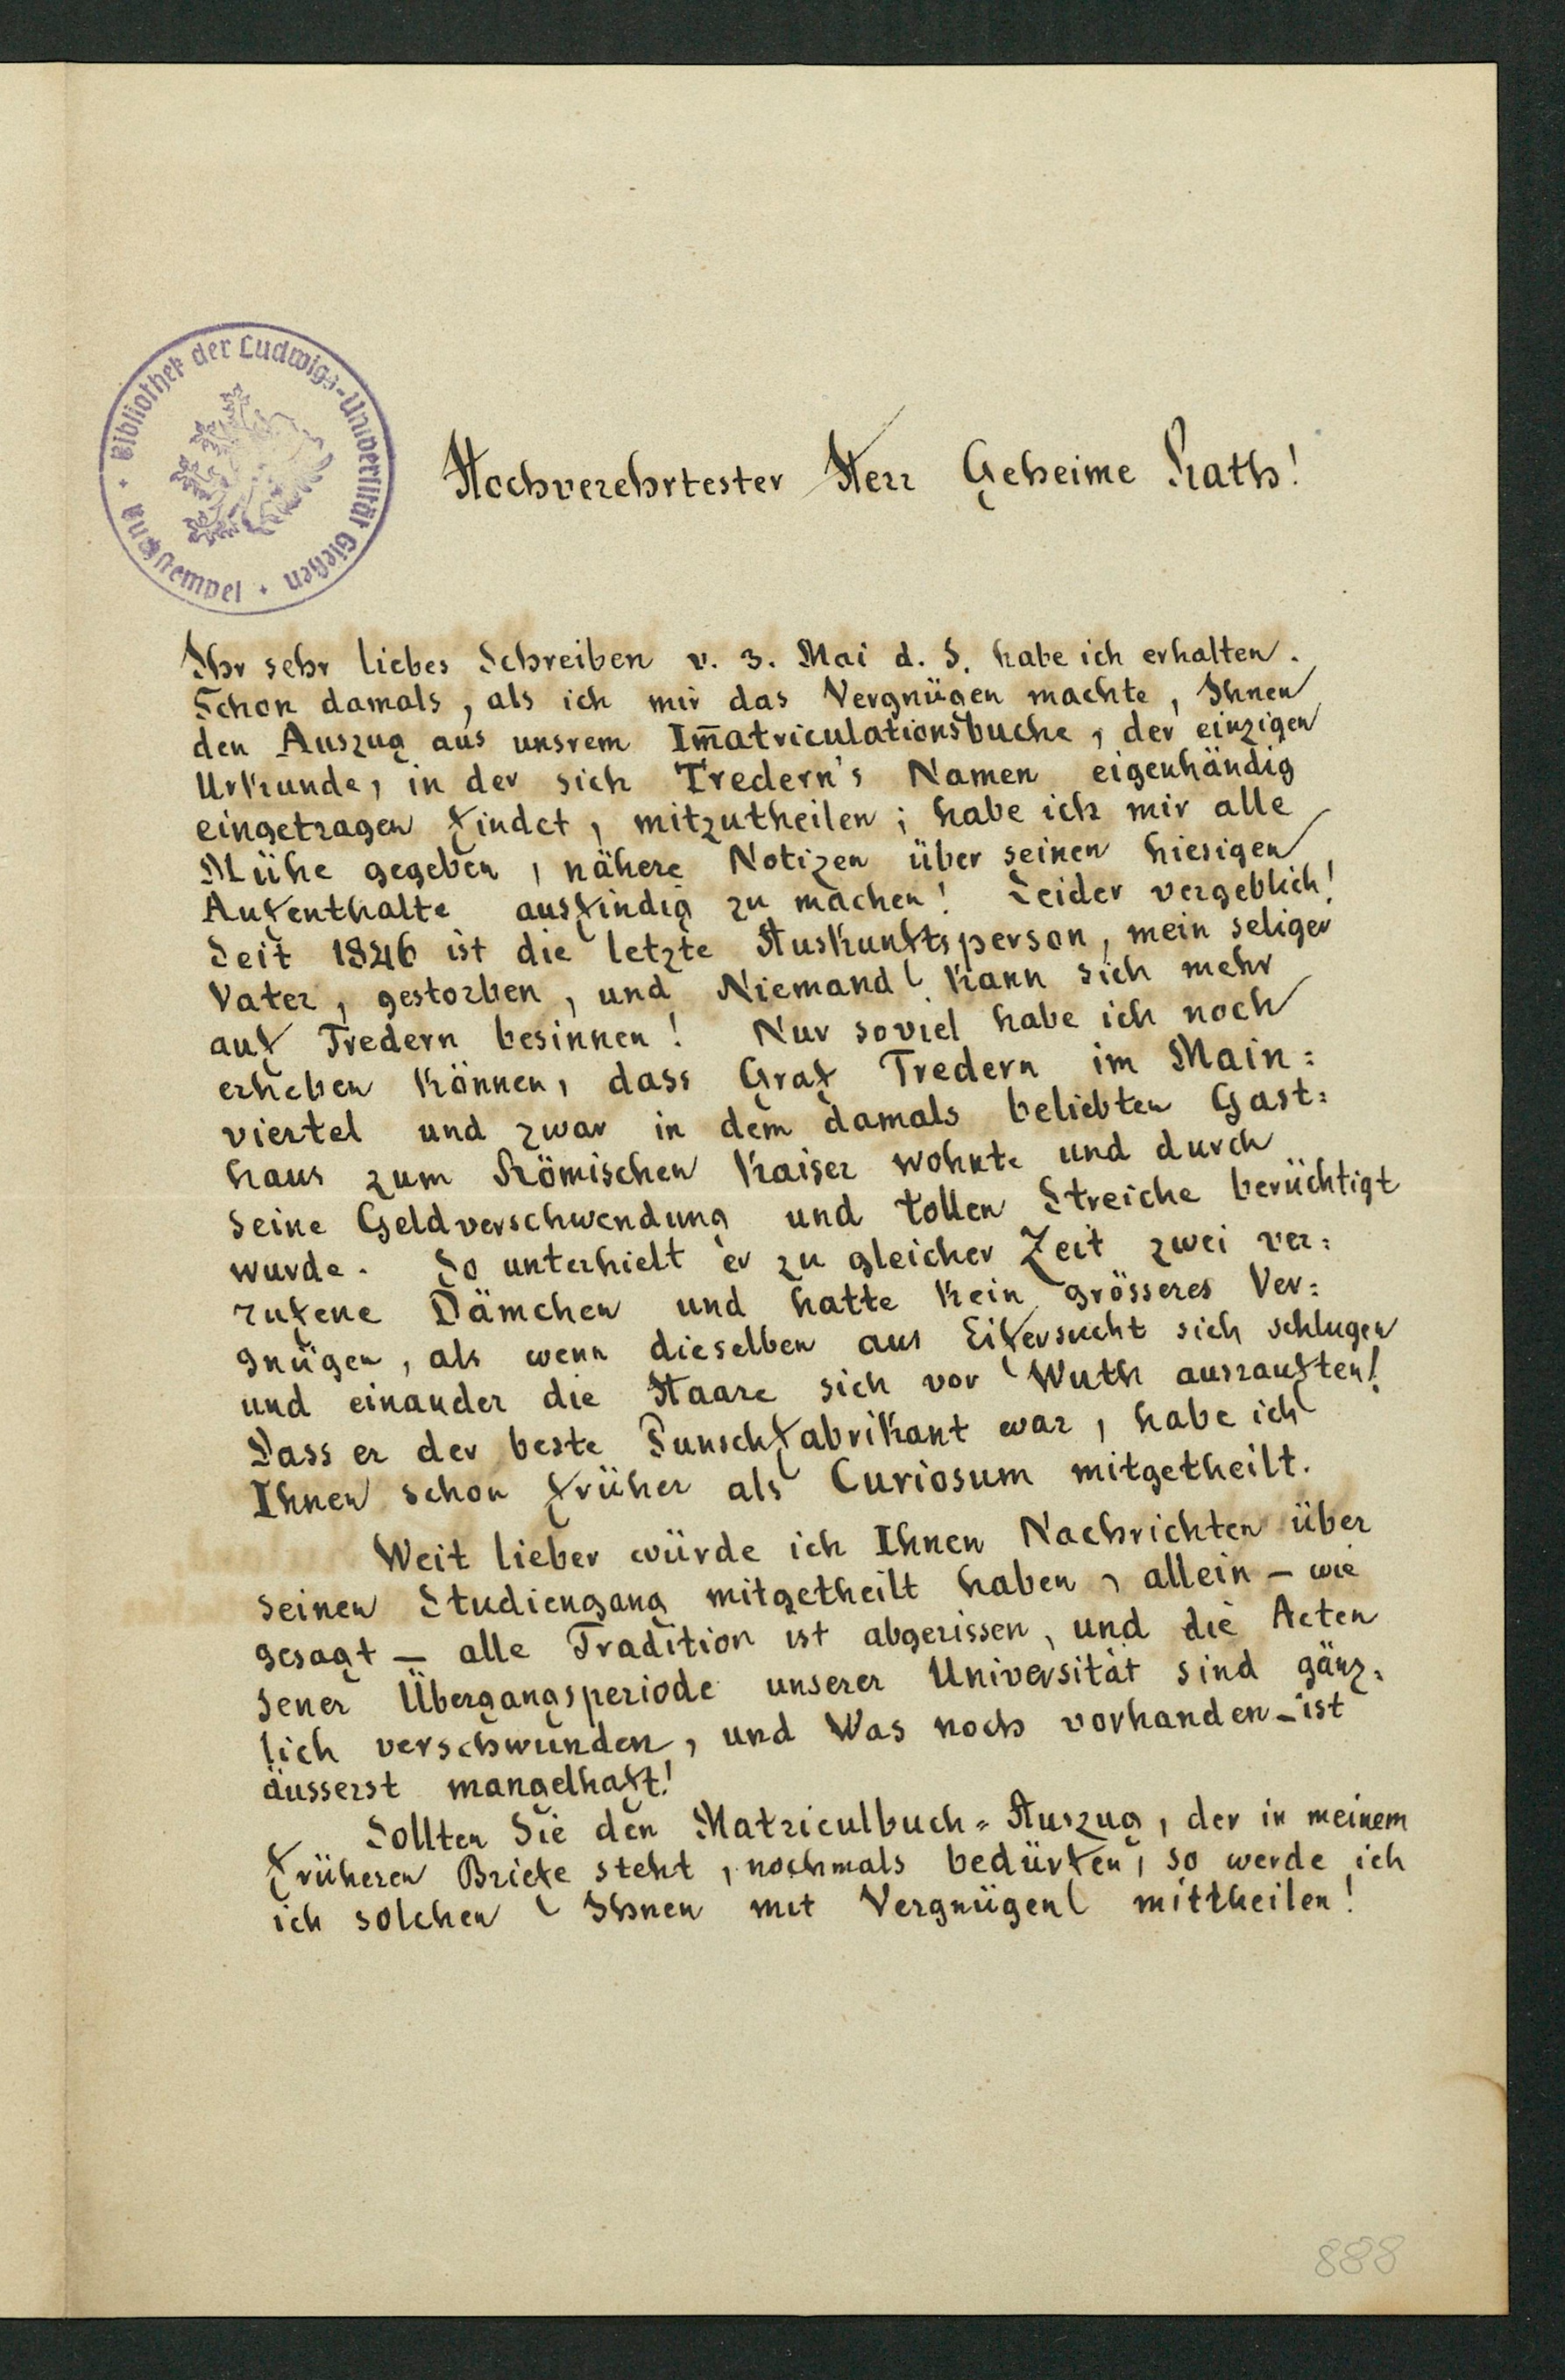 Bibliothek der Ludwigs-Universität Gießen
Buchstempel
Hochverehrtester Herr Geheime Rath!
Ihr sehr liebes Schreiben v. 3. Mai d. J. habe ich erhalten.
Schon damals, als ich mir das Vergnügen machte, Ihnen
den Auszug aus unsrem Im̅atriculationsbuche, der einzigen
Urkunde, in der sich Tredern's Namen eigenhändig
eingetragen findet, mitzutheilen; habe ich mir alle
Mühe gegeben, nähere Notizen über seinen hiesigen
Aufenthalte ausfindig zu machen! Leider vergeblich!
Seit 1846 ist die letzte Auskunftsperson, mein seliger
Vater, gestorben, und Niemand kann sich mehr
auf Tredern besinnen! Nur soviel habe ich noch
erheben können, dass Graf Tredern im Main:
viertel und zwar in dem damals beliebten Gast:
haus zum Römischen Kaiser wohnte und durch
seine Geldverschwendung und tollen Streiche berüchtigt
wurde. So unterhielt er zu gleicher Zeit zwei ver:
rufene Dämchen und hatte kein grösseres Ver:
gnügen, als wenn dieselben aus Eifersucht sich schlugen
und einander die Haare sich vor Wuth ausrauften!
Dass er der beste Punschfabrikant war, habe ich
Ihnen schon früher als Curiosum mitgetheilt.
Weit lieber würde ich Ihnen Nachrichten über
seinen Studiengang mitgetheilt haben, allein – wie
gesagt – alle Tradition ist abgerissen, und die Acten
jener Übergangsperiode unserer Universität sind gänz:
lich verschwunden, und Was noch vorhanden – ist
äusserst mangelhaft!
Sollten Sie den Matriculbuch=Auszug, der in meinem
früheren Briefe steht, nochmals bedürfen, so werde ich
ich solchen Ihnen mit Vergnügen mittheilen!
888